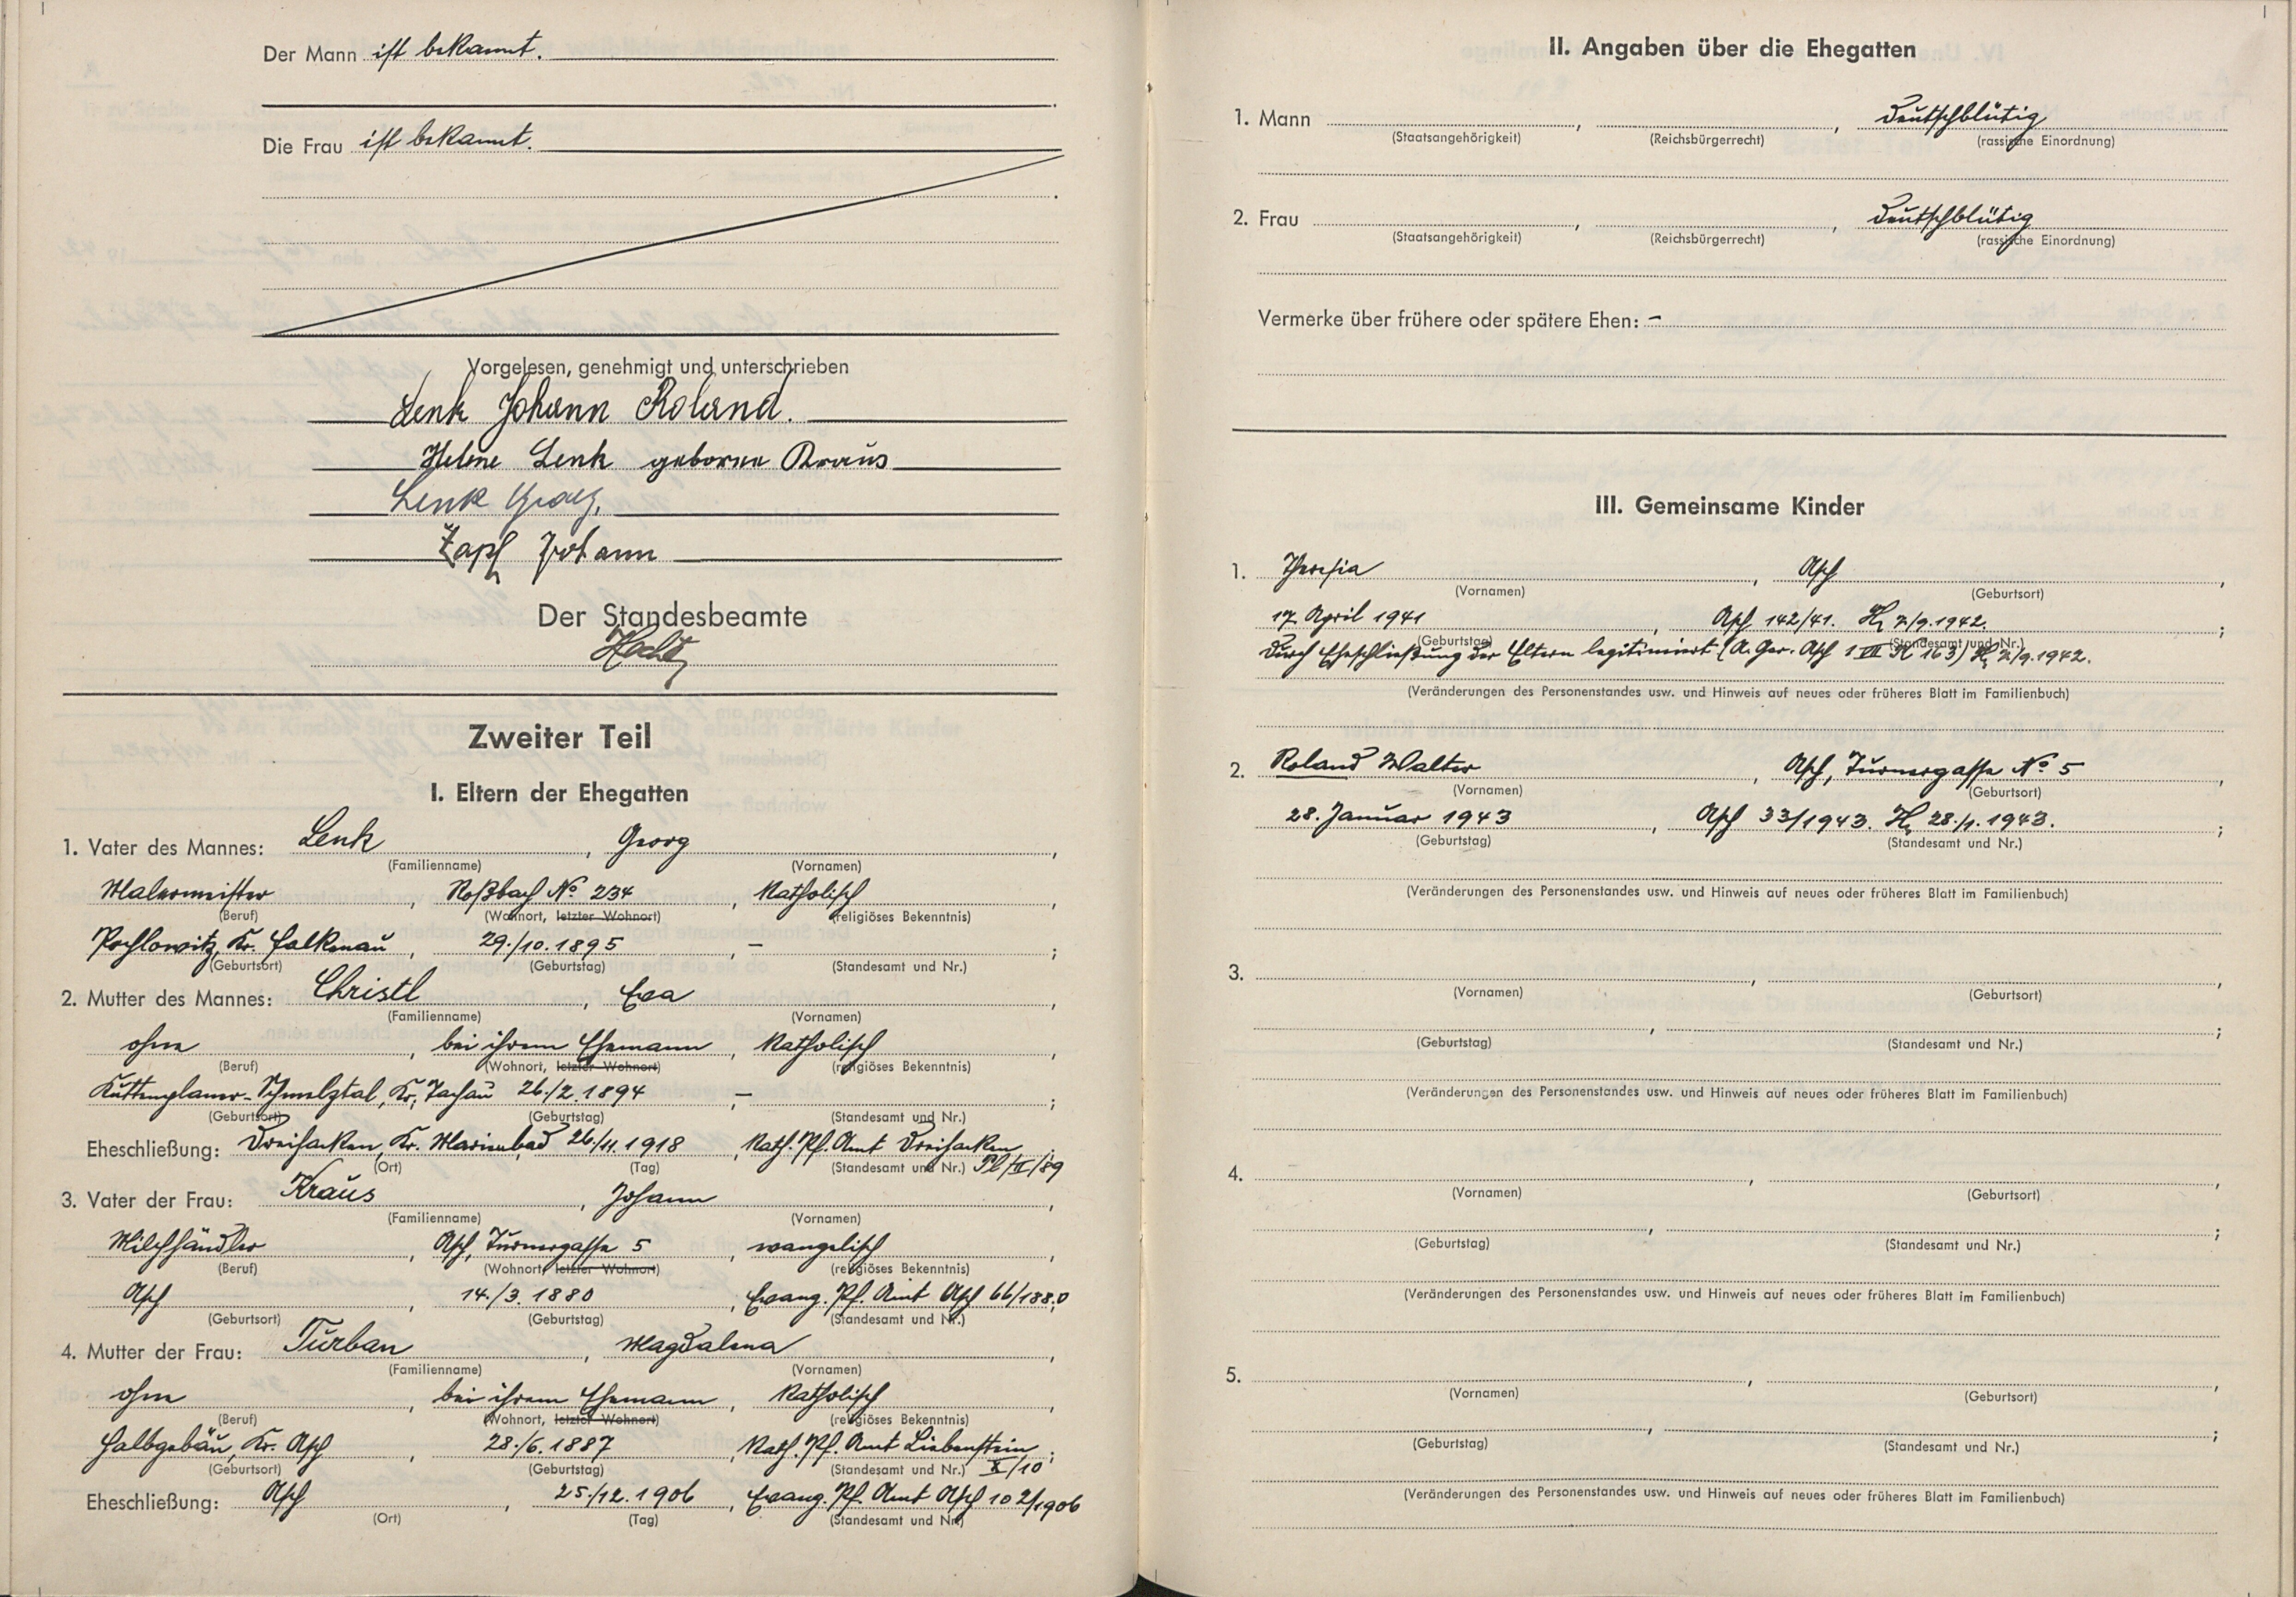 Der Mann ist bekannt.
Die Frau ist bekannt.
Vorgelesen, genehmigt und unterschrieben
Lenk Johann Roland.
Helene Lenk geborene Kraus
Lenk Georg.
Zapf Johann
Der Standesbeamte
Zweiter Teil
I. Eltern der Ehegatten
1. Vater des Mannes: Lenk, Georg,
(Familienname) (Vornamen)
Malermeister, Roßbach No 234, Katholisch,
(Beruf) (Wohnort, letzter Wohnort) (religiöses Bekenntnis)
Pochlowitz, Kr. Falkenau, 29./10.1895, – ;
(Geburtsort) (Geburtstag) (Standesamt und Nr.)
2. Mutter des Mannes: Christl, Eva,
(Familienname) (Vornamen)
ohne, bei ihrem Ehemann, Katholisch,
(Beruf) (Wohnort, letzter Wohnort) (religiöses Bekenntnis)
Kuttenplaner-Schmelztal, Kr. Tachau 26./2.1894, – ;
(Geburtsort) (Geburtstag) (Standesamt und Nr.)
Eheschließung: Dreihacken, Kr. Marienbad 26./11.1918, Kath. Pf. Amt Dreihacken
(Ort) (Tag) (Standesamt und Nr.) /II/89
3. Vater der Frau: Kraus, Johann,
(Familienname) (Vornamen)
Milchhändler, Asch, Turnergasse 5, evangelisch,
(Beruf) (Wohnort, letzter Wohnort) (religiöses Bekenntnis)
Asch, 14./3.1880, Evang. Pf. Amt Asch 66/1880
(Geburtsort) (Geburtstag) (Standesamt und Nr.)
4. Mutter der Frau: Turban, Magdalena,
(Familienname) (Vornamen)
ohne, bei ihrem Ehemann, Katholisch,
(Beruf) (Wohnort, letzter Wohnort) (religiöses Bekenntnis)
Halbgebäu, Kr. Asch, 28./6.1887, Kath. Pf. Amt Liebenstein;
(Geburtsort) (Geburtstag) (Standesamt und Nr.) X/10
Eheschließung: Asch, 25./12.1906, Evang. Pf. Amt Asch 102/1906
(Ort) (Tag) (Standesamt und Nr.)
II. Angaben über die Ehegatten
1. Mann , , Deutschblütig
(Staatsangehörigkeit) (Reichsbürgerrecht) (rassische Einordnung)
2. Frau , , Deutschblütig
(Staatsangehörigkeit) (Reichsbürgerrecht) (rassische Einordnung)
Vermerke über frühere oder spätere Ehen: –
III. Gemeinsame Kinder
1. Theresia, Asch,
(Vornamen) (Geburtsort)
17. April 1941, Asch 142/41. 7/9.1942. ;
(Geburtstag) (Standesamt und Nr.)
Durch Eheschließung der Eltern legitimiert (A. Ger. Asch 1 VII 163) 7/9.1942.
(Veränderungen des Personenstandes usw. und Hinweis auf neues oder früheres Blatt im Familienbuch)
2. Roland Walter, Asch, Turnergasse No 5,
(Vornamen) (Geburtsort)
28. Januar 1943, Asch 33/1943. 28./1.1943. ;
(Geburtstag) (Standesamt und Nr.)
(Veränderungen des Personenstandes usw. und Hinweis auf neues oder früheres Blatt im Familienbuch)
3. , ,
(Vornamen) (Geburtsort)
, ;
(Geburtstag) (Standesamt und Nr.)
(Veränderungen des Personenstandes usw. und Hinweis auf neues oder früheres Blatt im Familienbuch)
4. , ,
(Vornamen) (Geburtsort)
, ;
(Geburtstag) (Standesamt und Nr.)
(Veränderungen des Personenstandes usw. und Hinweis auf neues oder früheres Blatt im Familienbuch)
5. , ,
(Vornamen) (Geburtsort)
, ;
(Geburtstag) (Standesamt und Nr.)
(Veränderungen des Personenstandes usw. und Hinweis auf neues oder früheres Blatt im Familienbuch)